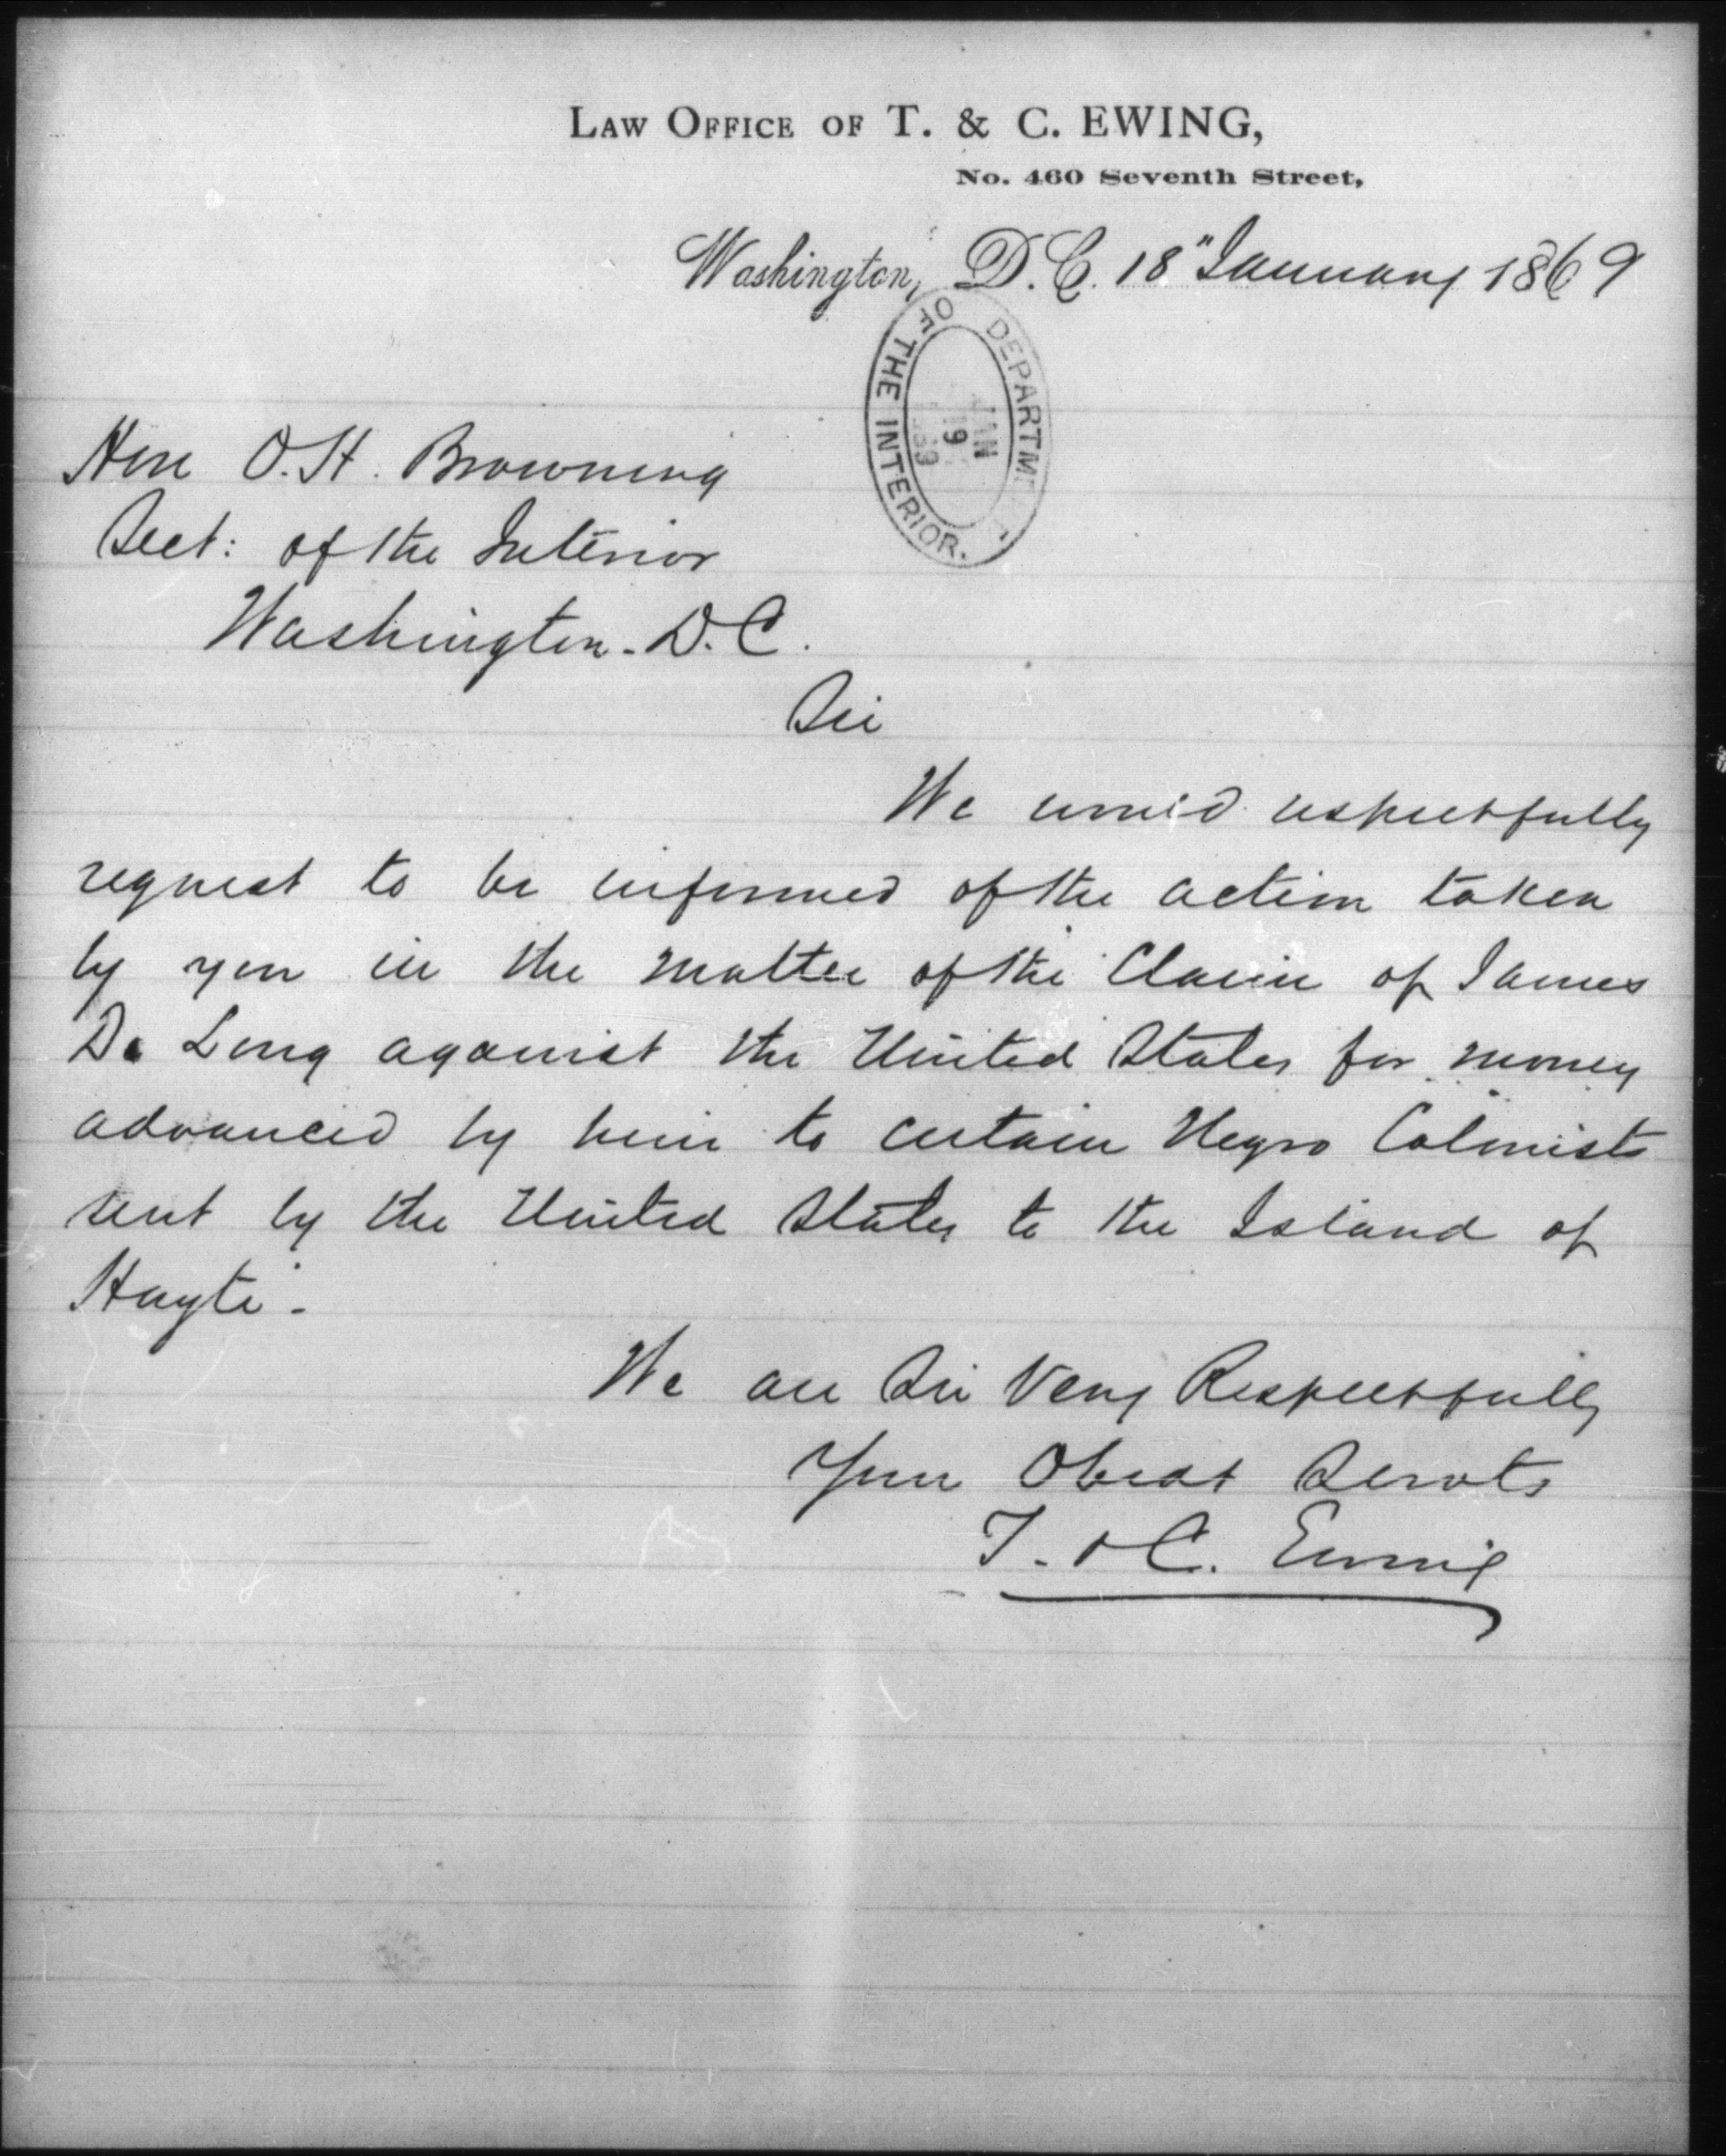 LAW OFFICE OF T. & C. EWING,
No. 460 Seventh Street,
Washington, D.C. 18" January 1869
DEPARTMENT OF THE INTERIOR.
JAN
19
Hon O. H. Browning
Sect: of the Interior
Washington - D.C.
Sir
We would respectfully
request to be informed of the action taken
by you in the matter of the Claim of James
De Long against the United States for money
advanced by him to certain Negro Colonists
sent by the United States to the Island of
Hayti -
We are Sir Very Respectfully
Your Obedt Servts
T. & C. Ewing